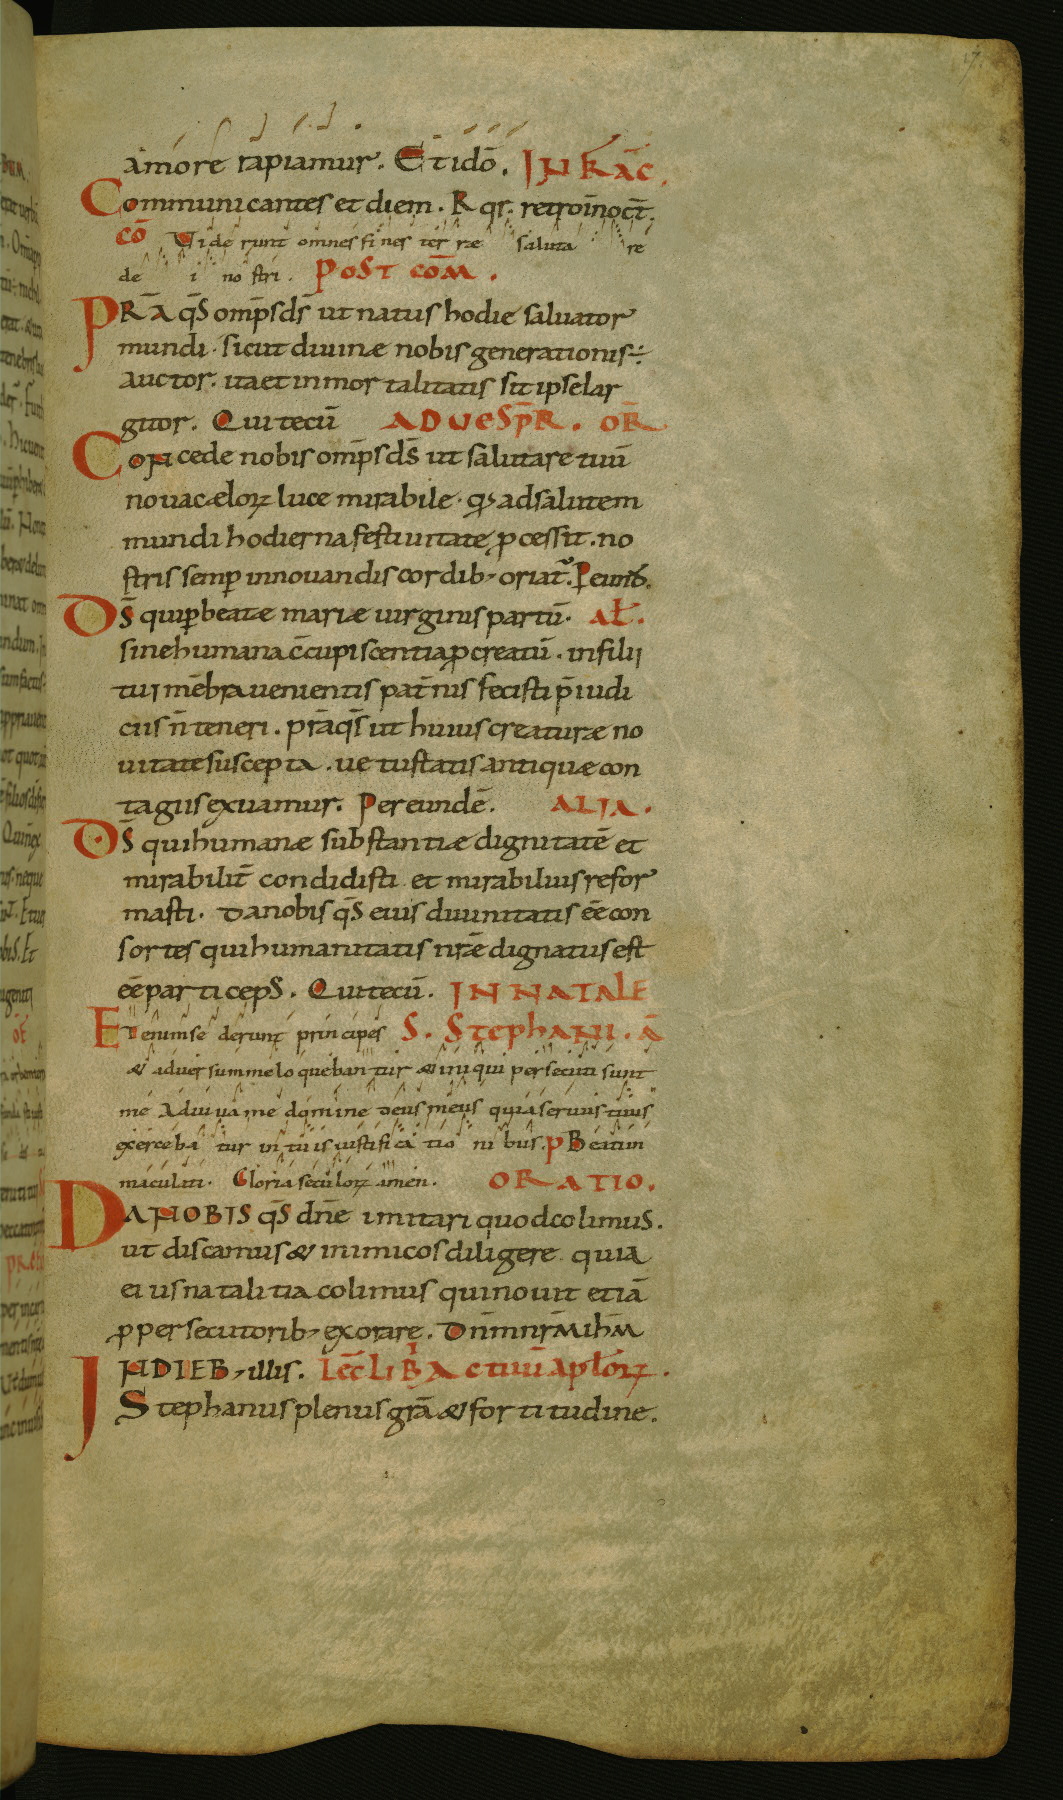 amore rapiamur. Et idō. IN KAC̄.
Communicantes et diem. R qr. retro in oct̄.
CŌ Viderunt omnes fines terrae saluta re
de i nostri. POST COM̄.
PRĀ q̄s omp̄s ds̄ ut natus hodie saluator
mundi. sicut diuinæ nobis generationis
auctor. ita et inmortalitatis sit ipse lar
gitor. Qui tecū AD UESPR̄. OR̄
Concede nobis omp̄s ds̄ ut salutare tuū
noua cælorꝝ luce mirabile. qđ ad salutem
mundi hodierna festiuitate ꝓcessit. no
stris semꝑ innouandis cordibꝰ oriat᷑. P eund̄.
DS̄ qui ꝑ beatæ mariæ uirginis partū. AL̄.
sine humana c̄cupiscentia ꝓcreatū. in filii
tui mēbra uenientis pat̄nis fecisti p̄iudi
ciis n̄ teneri. prā q̄s ut huius creaturæ no
uitate suscepta. uetustatis antiquæ con
tagiis exuamur. Per eundē. ALIA.
DS̄ qui humanæ substantiæ dignitatē et
mirabilit̄ condidisti et mirabilius refor
masti. Da nobis q̄s eius diuinitatis eē con
sortes qui humanitatis nr̄e dignatus est
eē particeps. Qui tecū. IN NATALE
Etenim sederunt principes S. Stephani. Ā
& aduersum me loquebantur & iniqui persecuti sunt
me Adiuua me domine deus meus quia seruus tuus
exerceba tur in tuis iustifica tio nibus. P Beati in
maculati. Gloria seculorꝝ amen. ORATIO.
DA NOBIS q̄s dn̄e imitari quod colimus.
ut discamus & inimicos diligere quia
eius natalitia colimus qui nouit etiā
ꝓ persecutoribꝰ exorare. Dn̄m nr̄m ih̄m
IN DIEBꝰ illis. Lec̄ libri Actuū apl̄orꝝ.
Stephanus plenus grā & fortitudine.